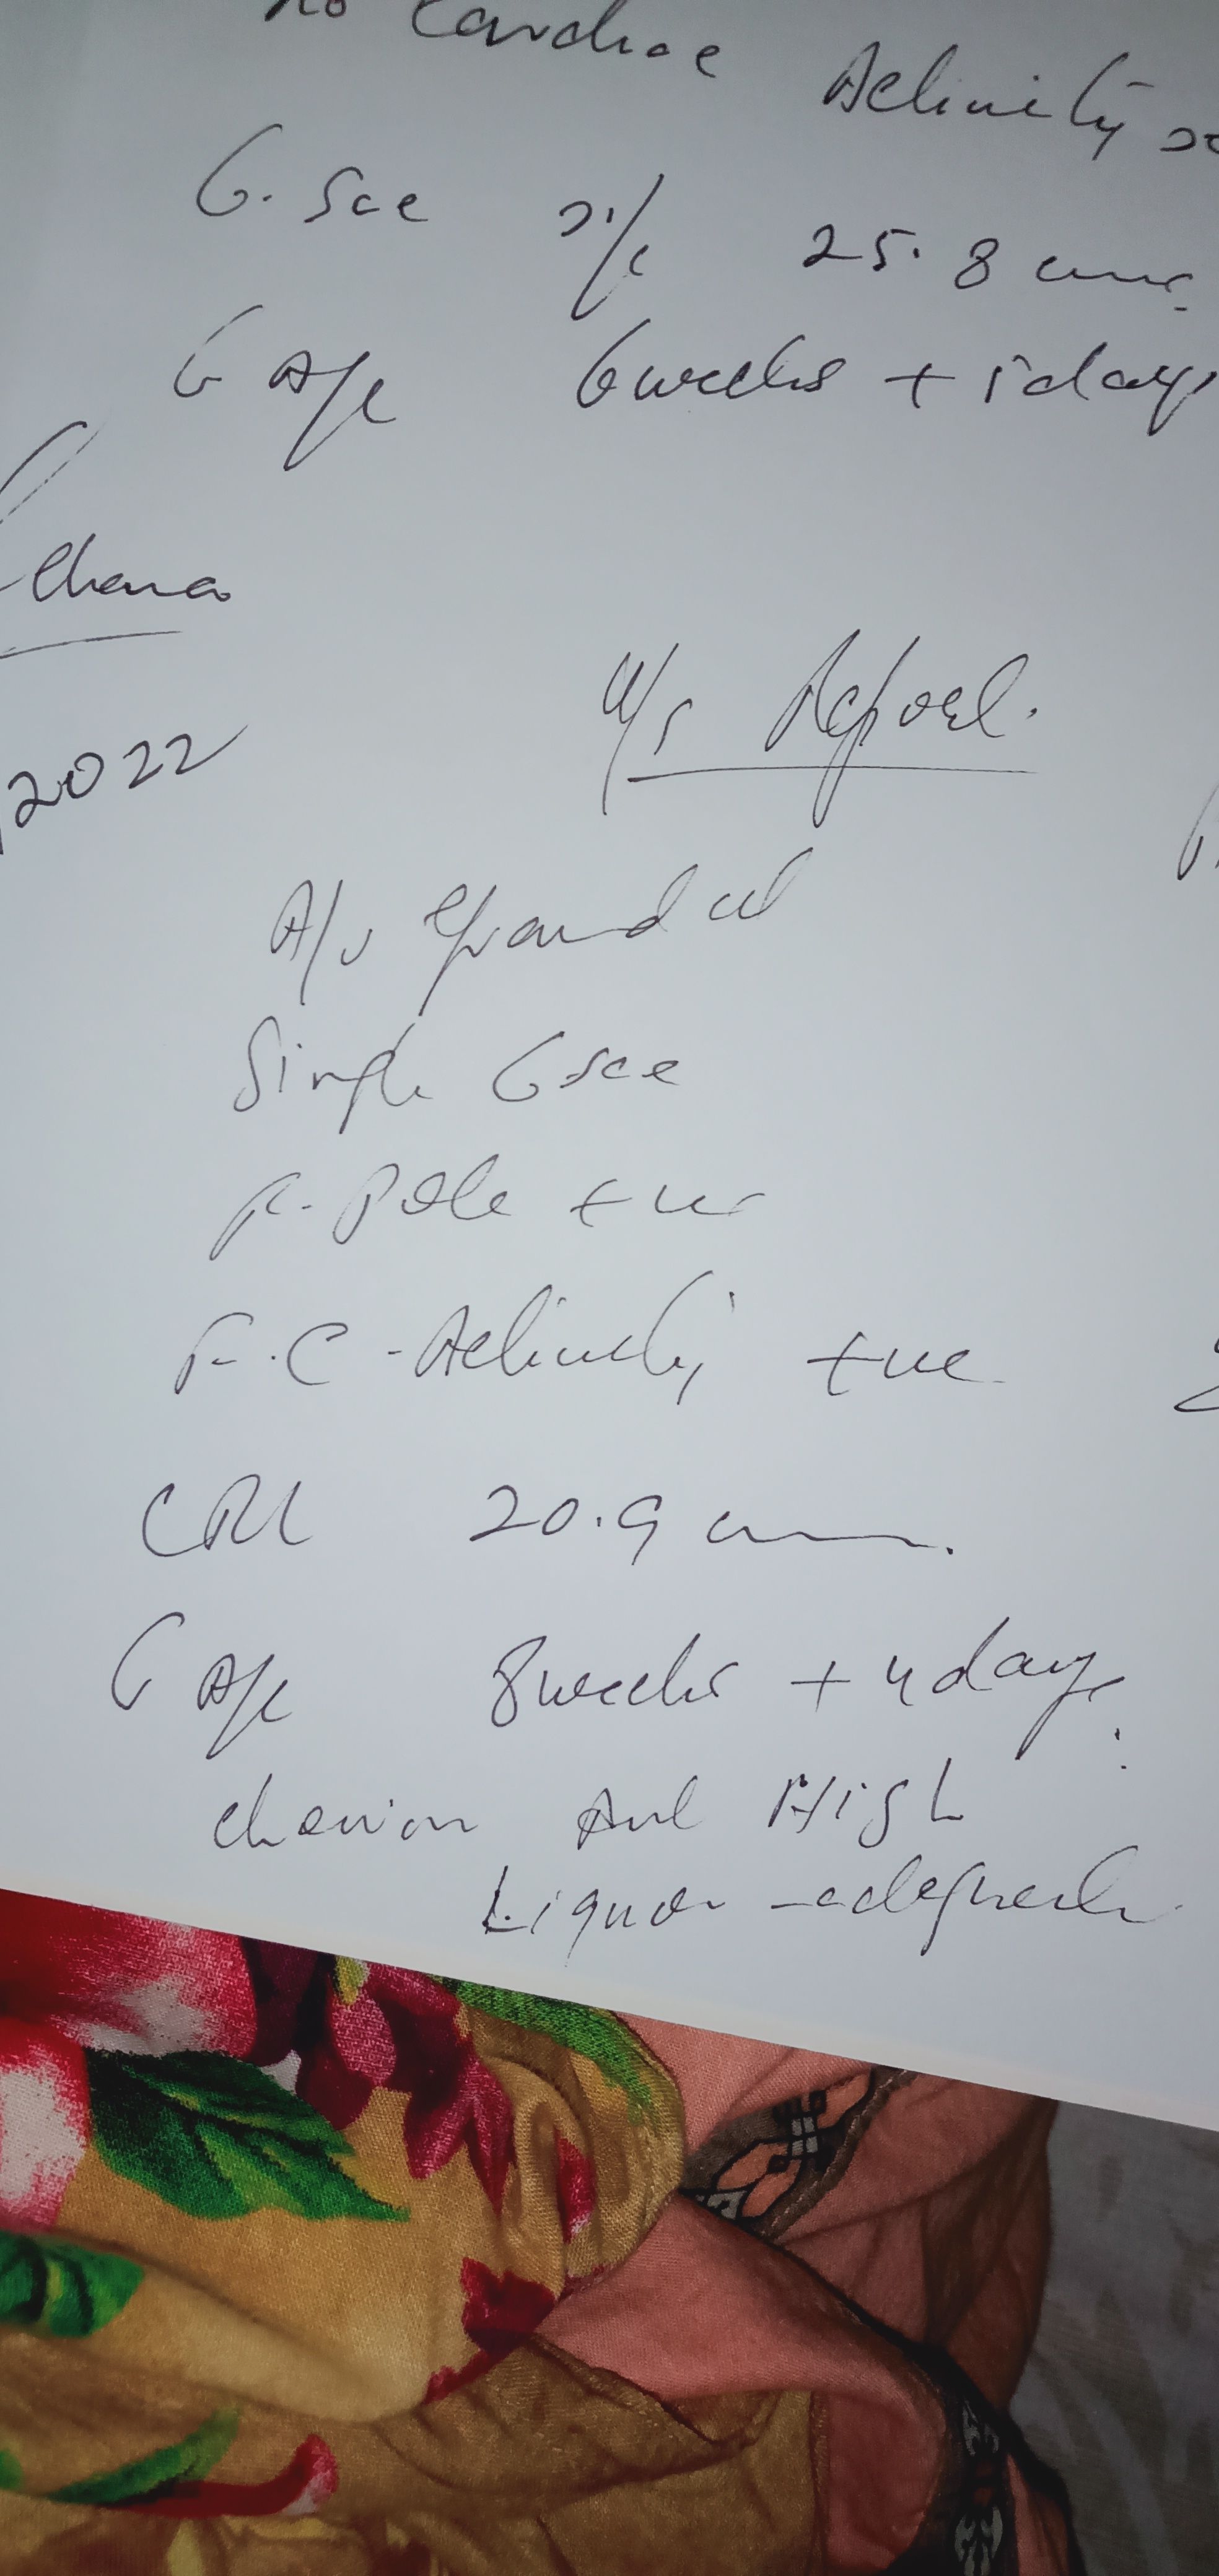 no Cardiac Activity
G. Sac 25.8
G Age 6 weeks + 1 day
2022
U/S Report.
A/V Gravid ut
Single G sac
F. Pole +ve
F.C - Activity +ve
CRL 20.9
G Age 8 weeks + 4 days.
chorion Ant High
Liquor - adequate